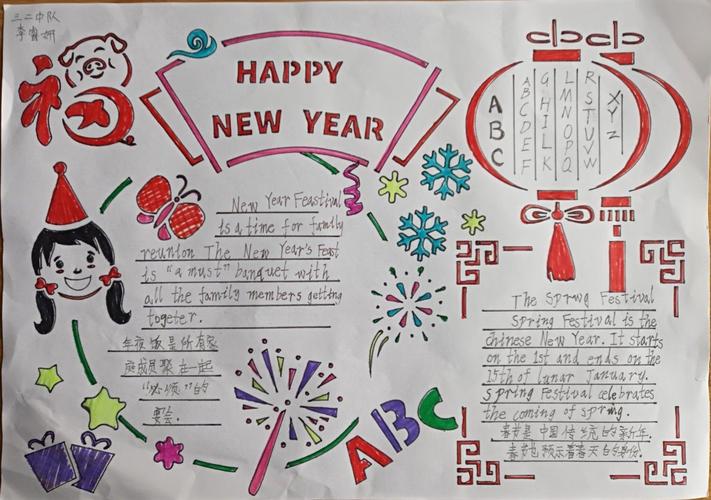 三二中队
李睿妍
福
HAPPY
NEW YEAR
A
B
C
A
B
C
D
E
F
G
H
I
L
K
L
M
N
O
P
Q
R
S
T
U
V
W
X
Y
Z
New Year Feastival
is a time for family
reunion The New Year's Feast
is "a must" banquet with
all the family members getting
togeter.
年夜饭是所有家
庭成员聚在一起
"必须"的
宴会.
ABC
The Sprwg Festival
Spring Festival is the
chinese New Year. It starts
on the 1st and ends on the
15th of lunar January.
Spring Festival celebrates
the coming of spring.
春节是中国传统的新年.
春节也预示着春天的